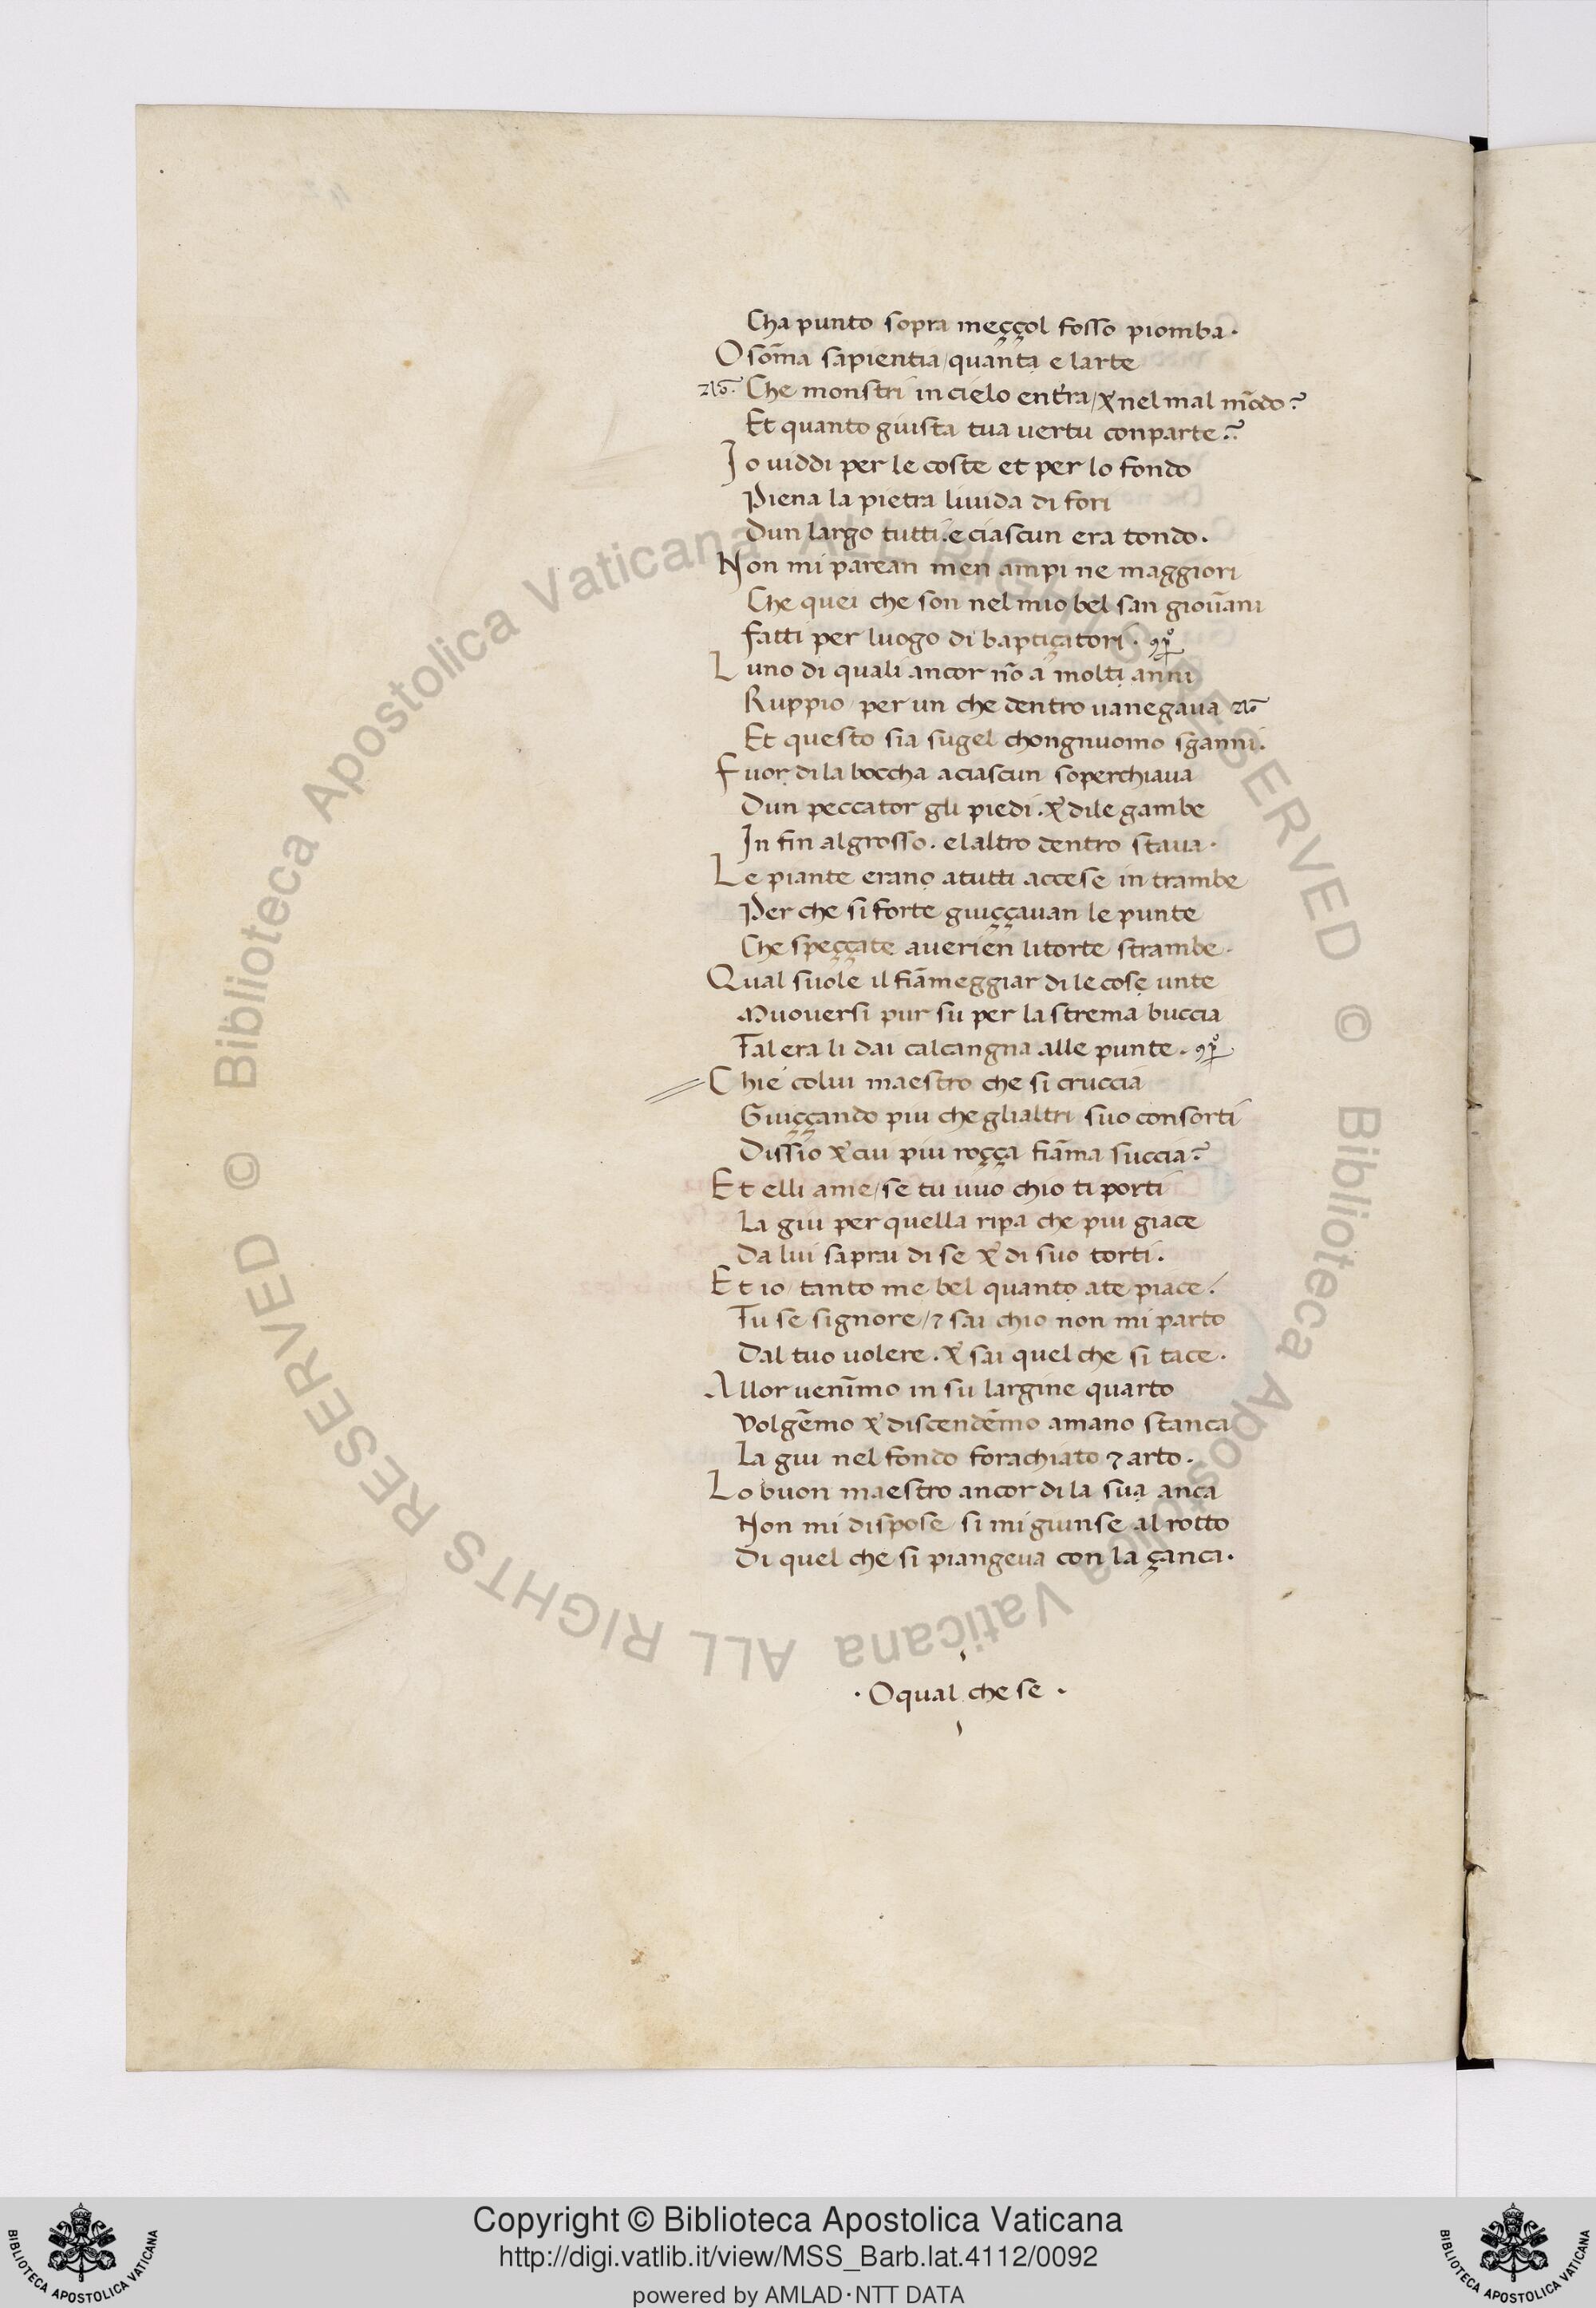 Cha punto sopra meççol fosso piomba.
O som̄a sapientia/quanta e larte
Che monstri in cielo enterra/& nel mal mōdo?
Et quanto giusta tua uertu conparte?
Io uiddi per le coste et per lo fondo
Piena la pietra liuida di fori
Dun largo tutti.e ciascun era tondo.
Non mi parean men ampi ne maggiori
Che quei che son nel mio bel san giouāni
fatti per luogo di baptiçatori.
Luno di quali ancor nō a molti anni
Ruppio/per un che dentro uanegaua
Et questo sia sugel chongnuomo sganni.
Fuor di la boccha a ciascun soperchiaua
Dun peccator gli piedi.& di le gambe
In fin al grosso. e laltro dentro staua.
Le piante erano a tutti accese in trambe
Per che si forte guiççauan le punte
Che speççate auerien li torte strambe.
Qual suole il fiāmeggiar di le cose unte
Muouersi pur su per la strema buccia
Tal era li dai calcangna alle punte.
Chie colui maestro che si cruccia
Guiççando piu che glialtri suo consorti
Dissio & cui piu roçça fiāma succia?
Et elli a me/se tu uuo chio ti porti
La giu per quella ripa che piu giace
Da lui saprai di se & di suo torti.
Et io/tanto me bel quanto a te piace/
Tu se signore/⁊ sai chio non mi parto
Dal tuo uolere.& sai quel che si tace.
Allor uenīmo in su largine quarto
Volgēmo & discendēmo a mano stanca
La giu nel fondo forachiato ⁊ arto.
Lo buon maestro ancor di la sua anca
Non mi dispose/si mi giunse al rotto
Di quel che si piangeua con la çanca.
. O qual che se .
© Biblioteca Apostolica Vaticana ALL RIGHTS RESERVED © Biblioteca Apostolica Vaticana ALL RIGHTS RESERVED
Copyright © Biblioteca Apostolica Vaticana
http://digi.vatlib.it/view/MSS_Barb.lat.4112/0092
powered by AMLAD·NTT DATA
BIBLIOTECA APOSTOLICA VATICANA
BIBLIOTECA APOSTOLICA VATICANA